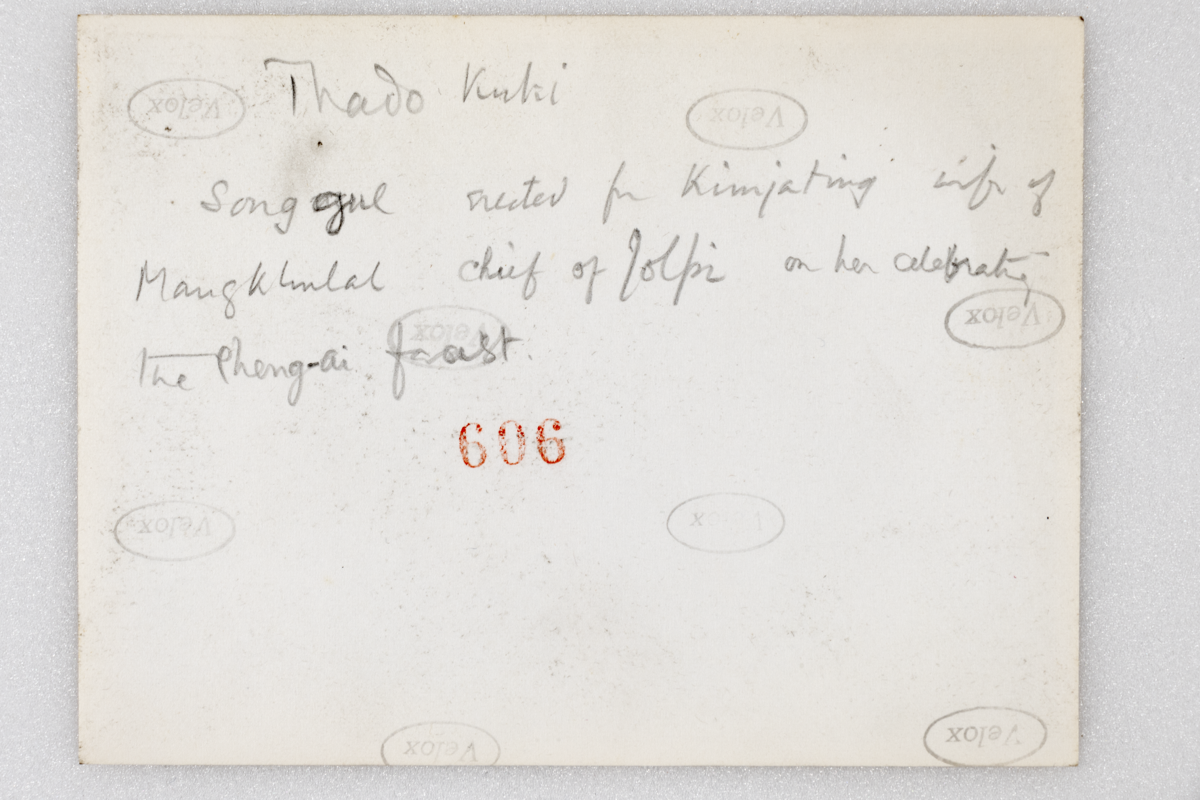 Velox
Thado Kuki
Velox
Songgul erected for Kimjating wife of
Mangkhulal chief of Jolpi on her celebrating
Velox
Velox
the Cheng-ai feast.
606
Velox
Velox
Velox
Velox